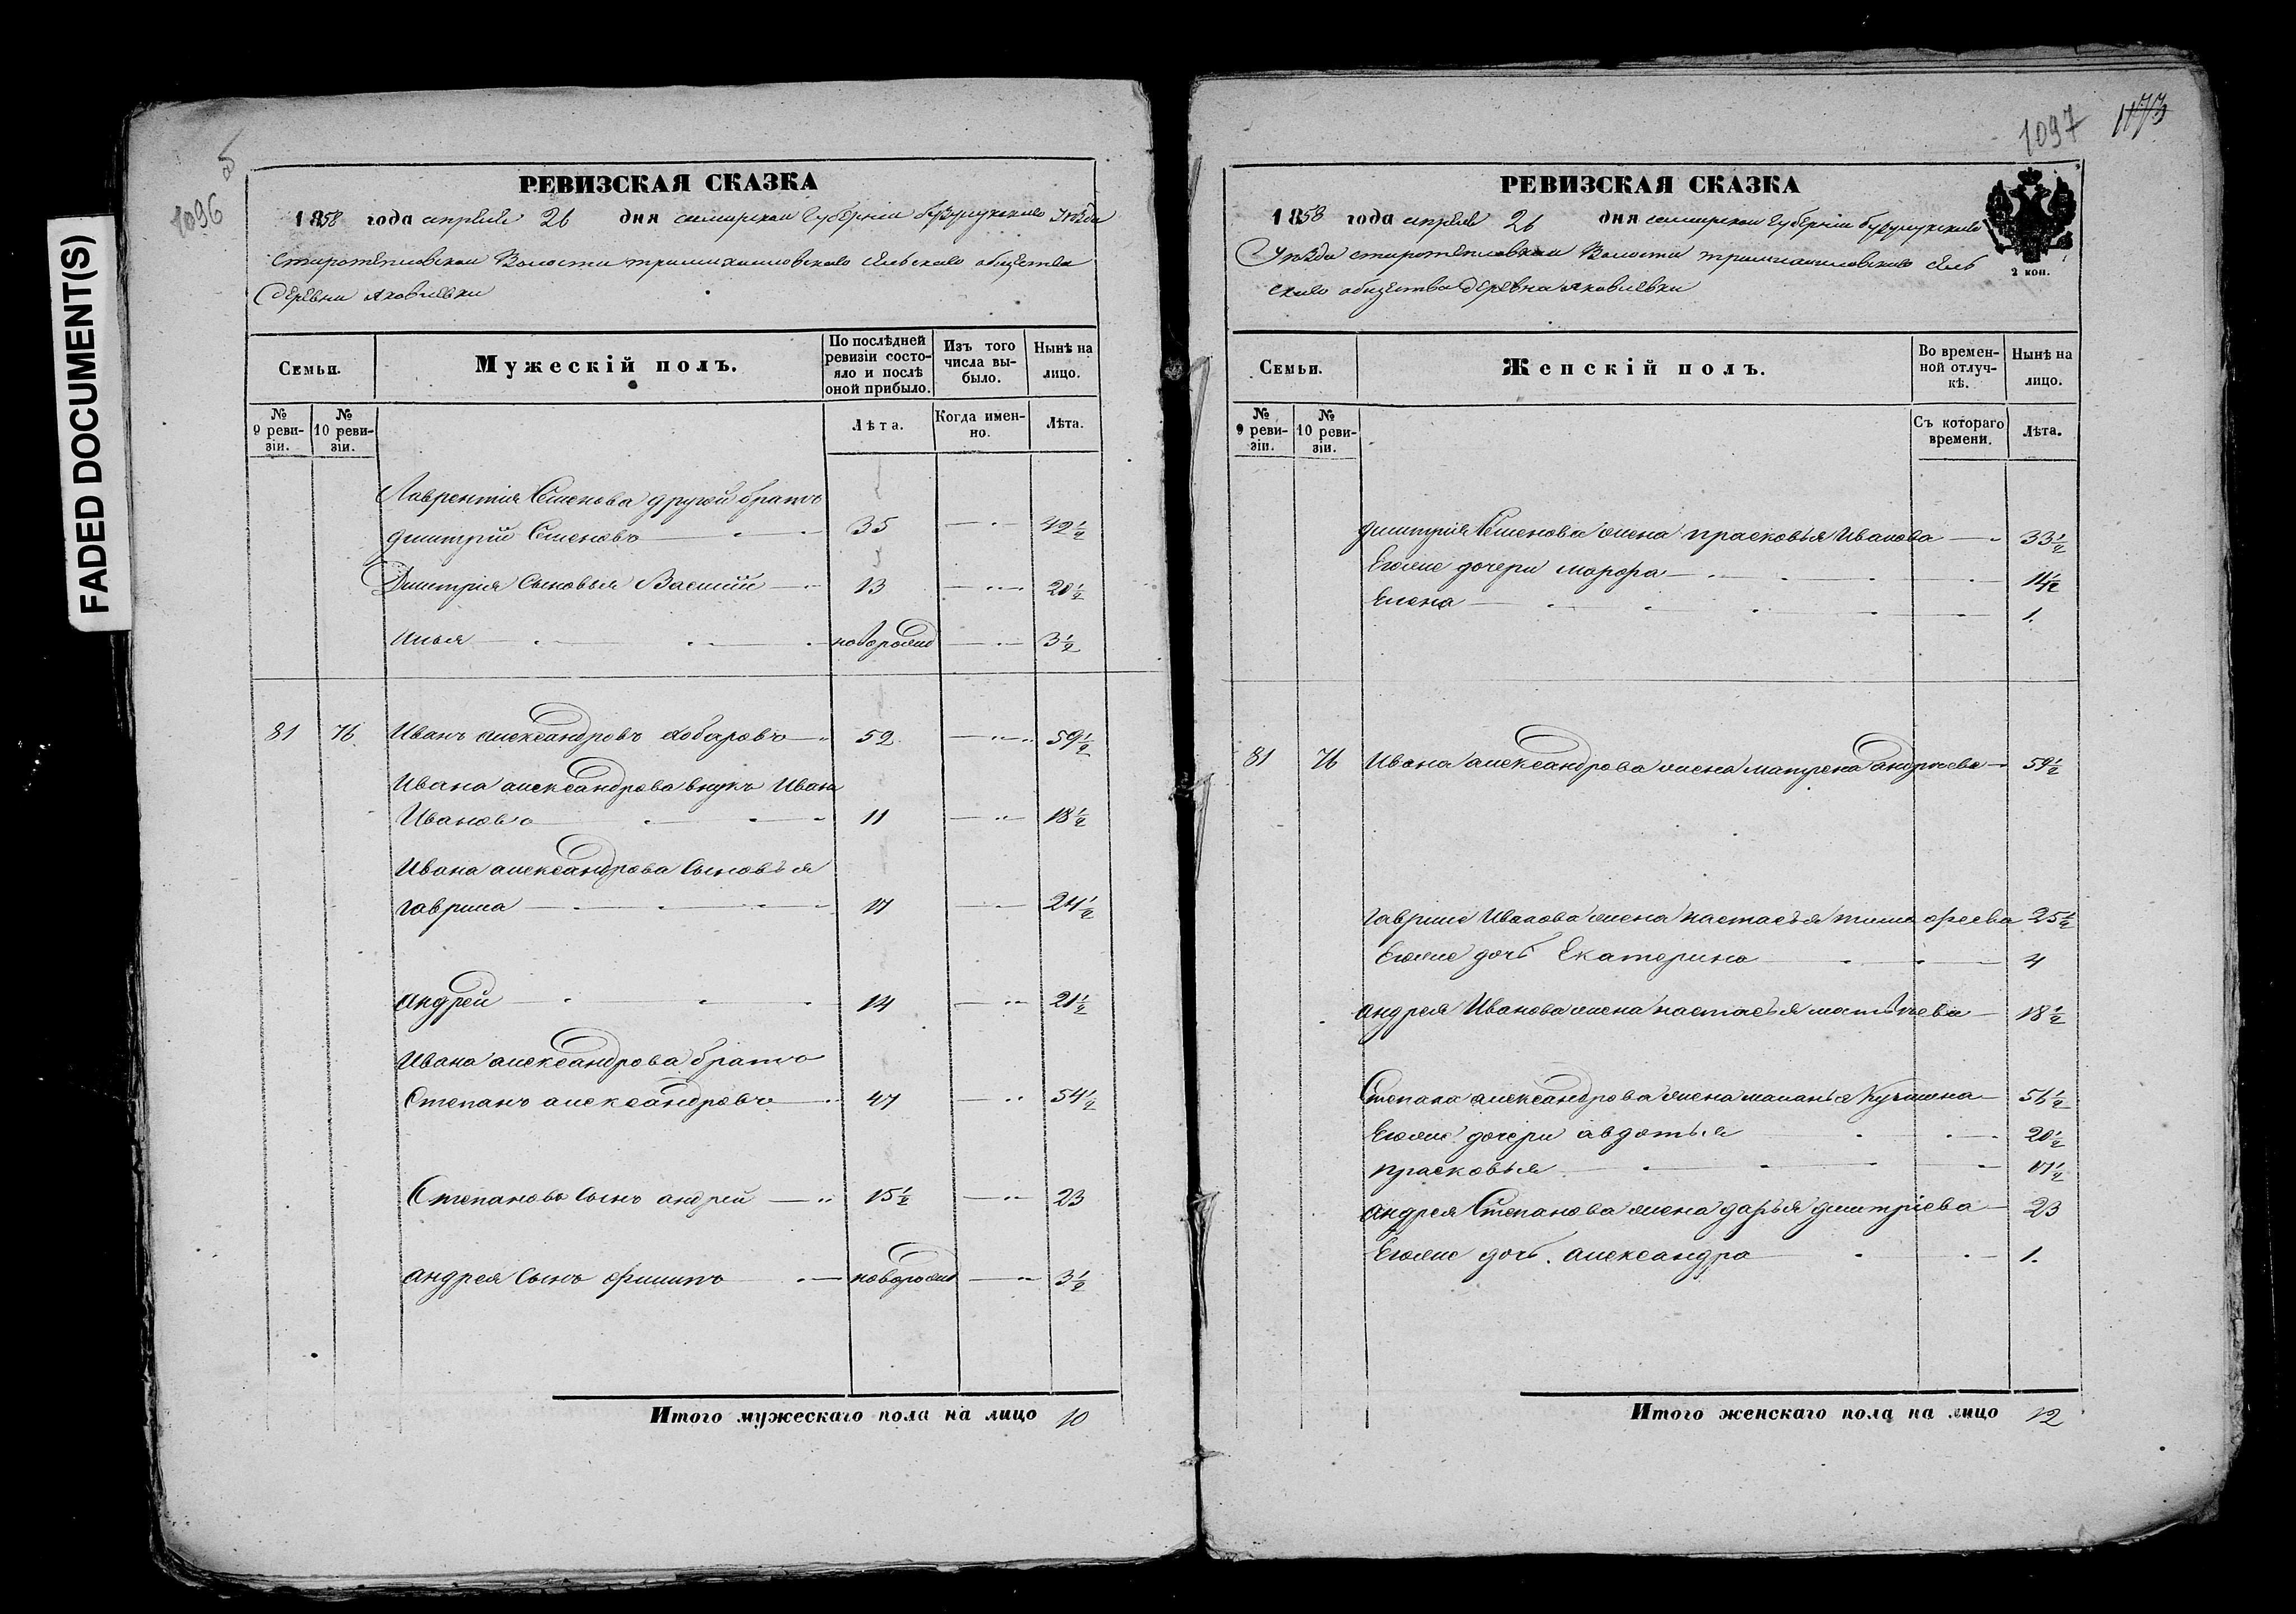 FADED DOCUMENT(S)
1096
5
РЕВИЗСКАЯ СКАЗКА
1858 года апреля 26 дня самарской губерніи бузулукскаго уѣзда
старотепловской Волости тримихаиловскаго сельскаго общества
деревни яковлевки
Семьи.
Мужескій полъ.
По послѣдней ревизіи состояло и послѣ оной прибыло.
Изъ того числа выбыло.
Нынѣ на лицо.
№ 9 ревизіи.
№ 10 ревизіи.
Лѣта.
Когда именно.
Лѣта.
Лаврентия Семенова другой братъ
дмитрий Семеновъ 35 42 1/2
Дмитрия Сыновья Василий 13 20 1/2
илья новорожд 3 1/2
81 76 Иванъ александровъ 52 59 1/2
Ивана александрова внукъ Иванъ
Ивановъ 11 18 1/2
Ивана александрова Сыновья
гаврила 17 24 1/2
андрей 14 21 1/2
Ивана александрова братъ
Степанъ александровъ 47 54 1/2
Степановъ Сынъ андрей 15 1/2 23
андрея Сынъ филипъ новорожд 3 1/2
Итого мужескаго пола на лицо 10
1097
1173
РЕВИЗСКАЯ СКАЗКА
1858 года апреля 26 дня самарской губерніи бузулукскаго
уѣзда старотепловской Волости тримихаиловскаго сель
скаго общества деревни яковлевки
2 коп.
Семьи.
Женскій полъ.
Во временной отлучкѣ.
Нынѣ на лицо.
№ 9 ревизіи.
№ 10 ревизіи.
Съ котораго времени.
Лѣта.
дмитрия Семенова жена прасковья Иванова 33 1/2
Егоже дочери марфа 14 1/2
Елена 1.
81 76 Ивана александрова жена матрена андреева 59 1/2
гаврилы Иванова жена настасья тимофеева 25 1/2
Егоже дочь Екатерина 4
андрея Иванова жена настасья матвѣева 18 1/2
Степана александрова жена маланья Кузмина 56 1/2
Егоже дочери авдотья 20 1/2
прасковья 17 1/2
андрея Степанова жена дарья дмитріева 23
Егоже дочь александра 1.
Итого женскаго пола на лицо 12